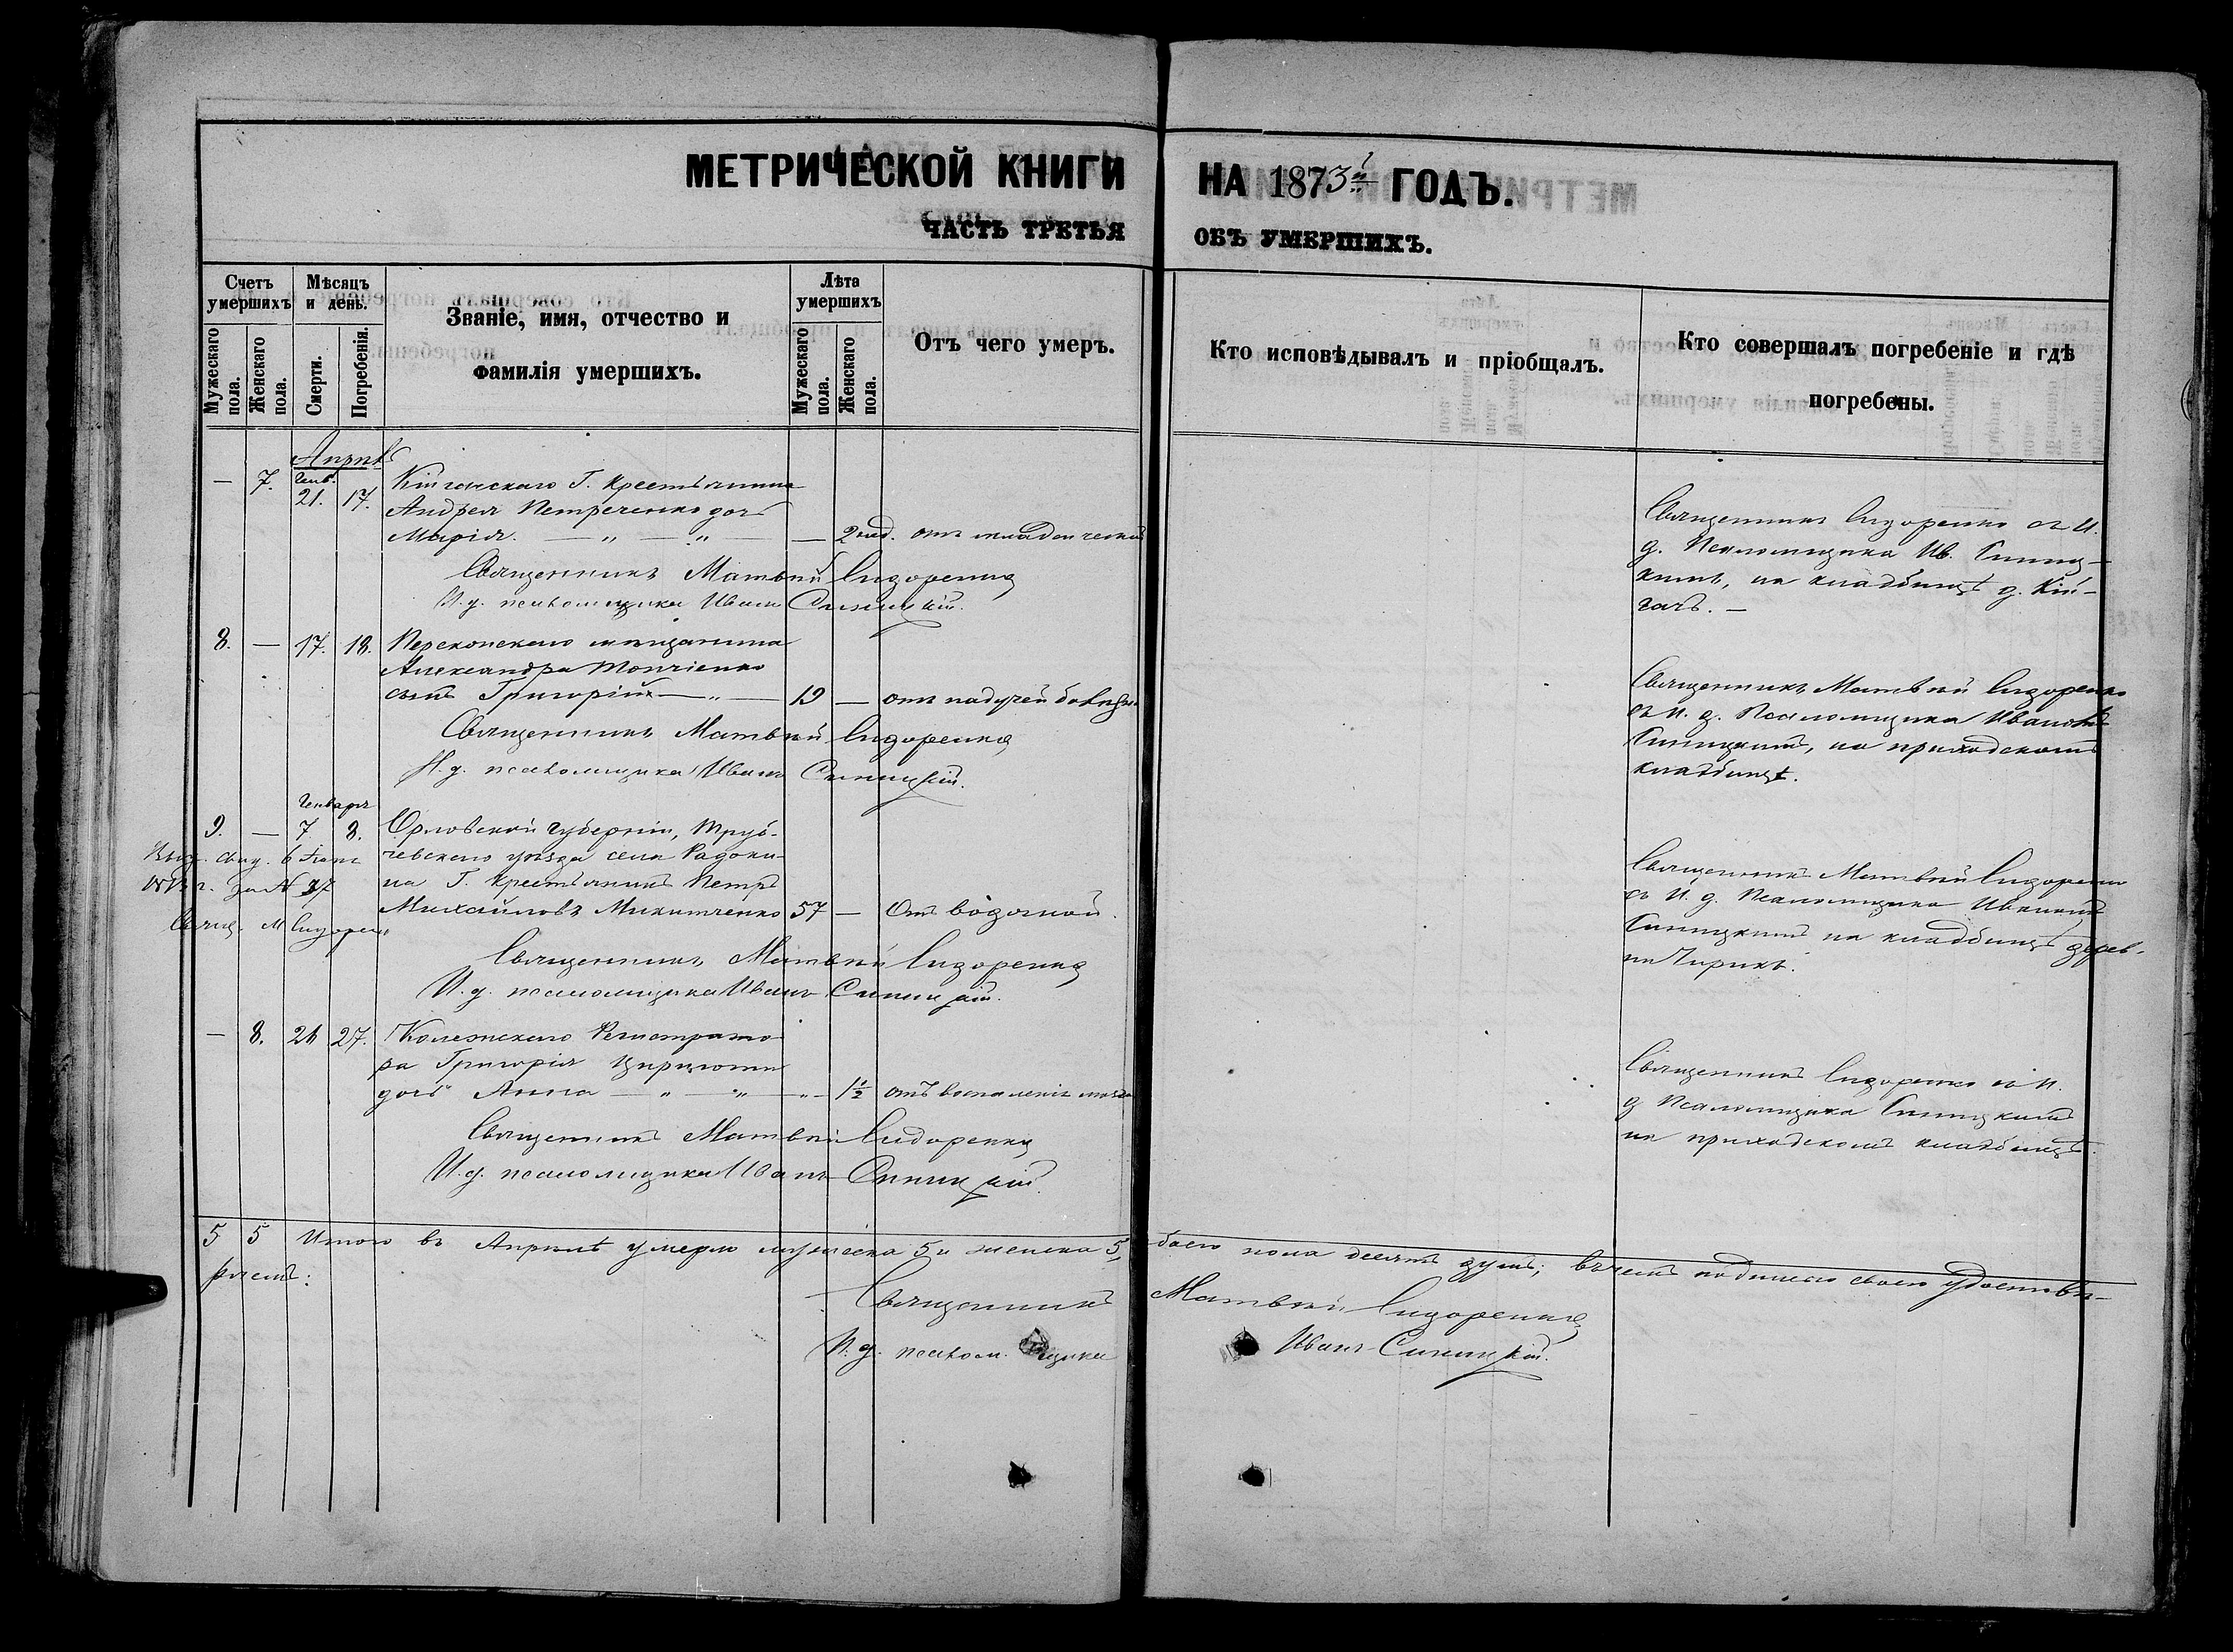 МЕТРИЧЕСКОЙ КНИГИ НА 1873й ГОДЪ.
ЧАСТЬ ТРЕТЬЯ ОБЪ УМЕРШИХЪ.
Счетъ умершихъ
Мужескаго пола.
Женскаго пола.
Мѣсяцъ и день.
Смерти.
Погребенія.
Званіе, имя, отчество и
фамилія умершихъ.
Лѣта умершихъ
Мужескаго пола.
Женскаго пола.
Отъ чего умеръ.
Кто исповѣдывалъ и пріобщалъ.
Кто совершалъ погребеніе и гдѣ
погребены.
Апрѣль
Генв.
— 7. 21. 17. Кійгачскаго Г. Крестьянина
Андрея Петреченко дочь
Марія. — „ — „ — — 2 нед. отъ младенческой
Священникъ Матвѣй Сидоренко
И. д. псаломщика Иванъ Синицкій.
Священникъ Сидоренко съ И.
д. Псаломщика Ив. Синиц-
кимъ, на кладбищѣ д. Кій-
гачъ. —
8. — 17. 18. Перекопскаго мѣщанина
Александра Топчіенко
сынъ Григорій — „ — 19 — отъ падучей болѣзни
Священникъ Матвѣй Сидоренко
И. д. псаломщика Иванъ Синицкій.
Священникъ Матвѣй Сидоренко
съ И. д. Псаломщика Иваномъ
Синицкимъ, на приходскомъ
кладбищѣ.
Генваря
9. — 7 8. Орловской губерніи, Труб-
чевскаго уѣзда села Радоки-
на Г. Крестьянинъ Петръ
Михайловъ Микитченко 57 — Отъ водяной.
Выд. свид. 6
г. за № 37
Свящ. М Сидорен
Священникъ Матвѣй Сидоренко
И. д. псаломщика Иванъ Синицкій.
Священникъ Матвѣй Сидоренко
съ И. д. Псаломщика Иваномъ
Синицкимъ на кладбищѣ дерев-
ни Чирикъ.
— 8. 26 27. Колежскаго Регистрато-
ра Григорія
дочь Анна — „ — „ — „ — 1½ отъ воспаленія мозга
Священникъ Матвѣй Сидоренко
И. д. псаломщика Иванъ Синицкій.
Священникъ Сидоренко съ И.
д Псаломщика Синицкимъ
на приходскомъ кладбищѣ.
5 5 Итого въ Апрѣлѣ умерло мужеска 5 и женска 5, обоего пола десять душъ; въ чемъ подписью своею удостовѣ-
ряемъ:
Священникъ Матвѣй Сидоренко
И. д. псаломщика Иванъ Синицкій.